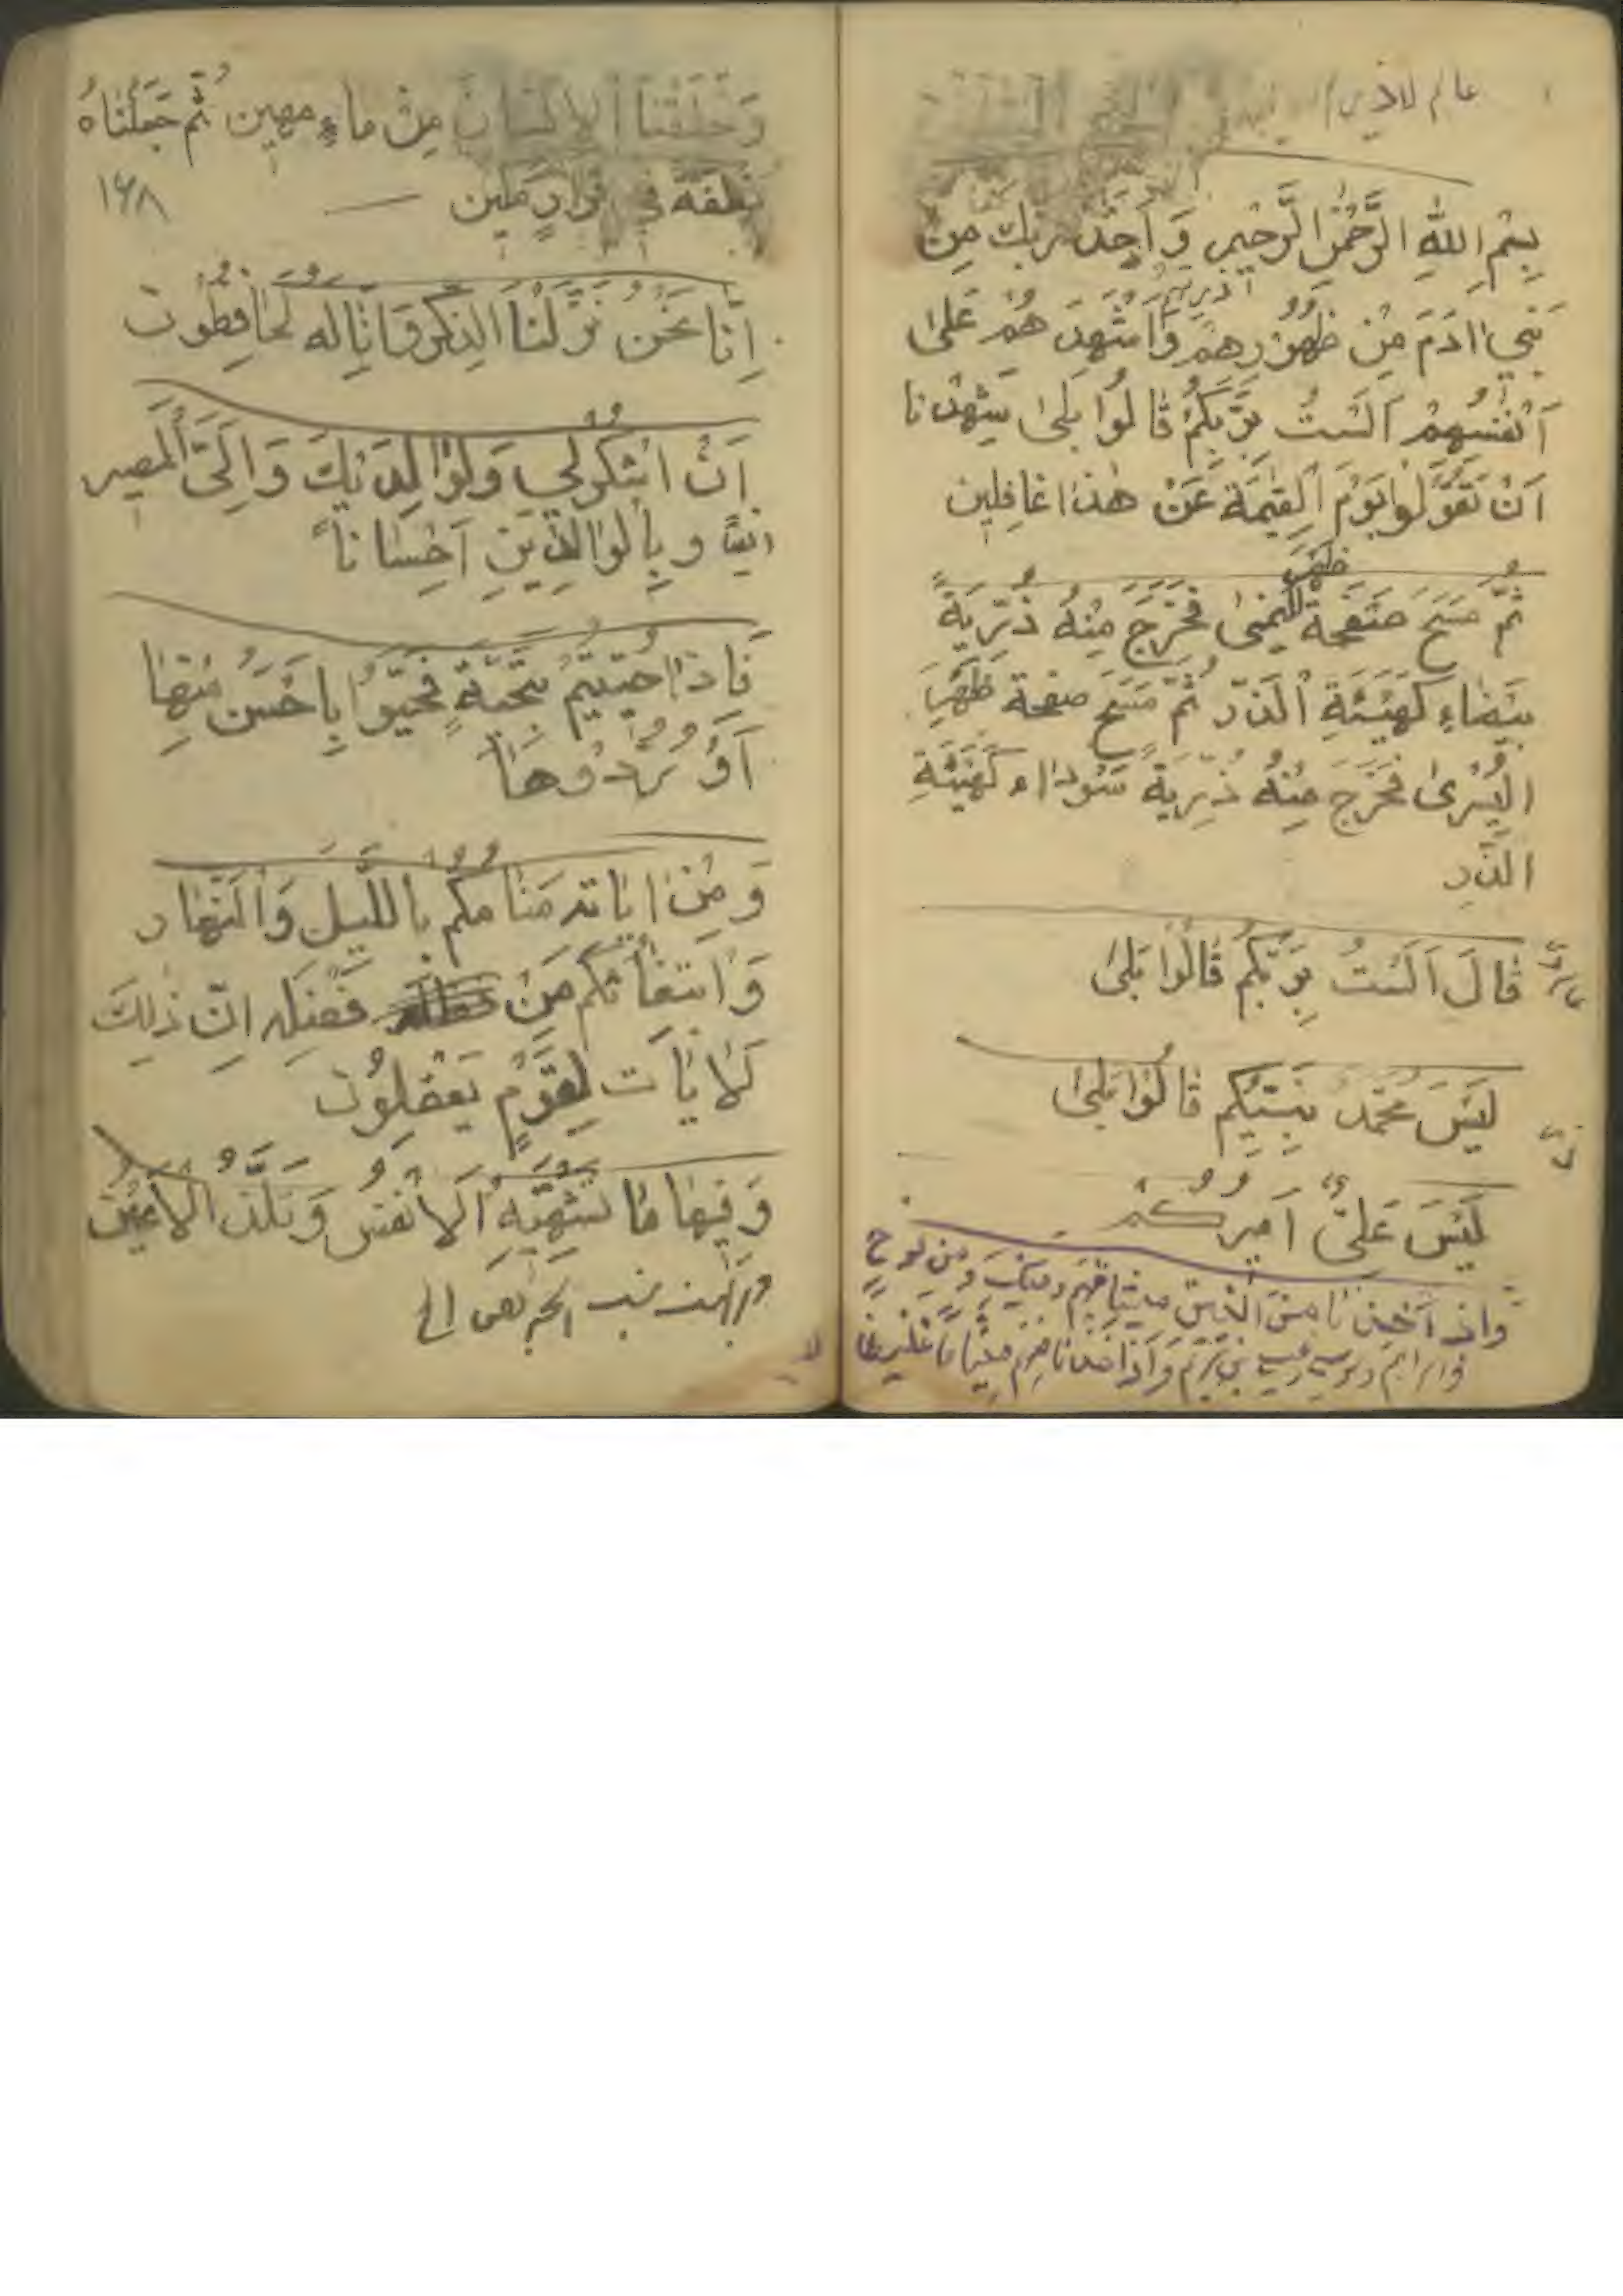 عالم
بِسْمِ اللّهِ الرَّحْمٰنِ الرَّحيمِ وَ اَخِذَ رَبُّكَ مِنْ
بَني اادَمَ مِنْ ظُهُوْرِهِمْ وَاَشْهَدَ هُمْ عَلىٰ
اَنْفُسِهِمْ اَلَسْتُ بِرَبِّكُمْ قالُوا بَلىٰ شَهِدْنا
اَنْ تَقُولُوا يَوْمَ الْقِيٰمَةِ عَنْ هٰذا غافِلين
ظَهْرِ
ثُمَّ مَسَحَ صَفْحَةَ اليُمنىٰ فَخَرَجَ مِنْهُ ذُرِّيَةً
بَيْضاءِ كَهَيْئَةِ الْذَرّ ثُمَّ مَسَحَ صفحة ظَهْرِ
الْيُسْرىٰ فَخَرَجَ مِنْهُ ذُرِّيَةً سَوْداء كَهَيْئَةِ
الذّر
قالَ اَلَسْتُ بِرَبِّكُمْ قالُوا بَلىٰ
لَيْسَ مُحَمَّدٌ نَبِيِّكُم قالُوا بَلىٰ
لَيْسَ عَلىٌّ اَميرُكُمْ
واذ اَخِذنا مِنَ ميثاقَهُم ومِنكَ وَ مِن نوحٍ
وابراهيم بن مَرْيَم وَاَخَذنا مِنهُم ميثاقاً غَليظاً
وَ خَلَقْنَا الاِنْسانَ مِنْ ماءٍ مهين ثُمَّ جَعَلْناهُ
نطفةً في قرارٍ مَكين
١٤٨
اِنّا نَحْنُ نَزَّلْنَا الذِكْرَ وَ اِنّا لَهُ لَحٰافِظُون
اَنْ اشْكُرْلي وَلِوٰالِدَيْكَ وَ اِلَىَّ الْمَصير
ايضاً و بِالْوٰالِدَيْنِ اِحْسٰاناً
فَاِذا حُيّيتُم بِتَحِيَّةٍ فَحَيّوُا بِاَحْسَنِ مِنْهٰا
اَوْ رُدُّوهٰا
وَ مِنْ اٰياتِه مَنٰامُكُم بِاللَّيلِ وَالنَّهارِ
وَابْتِغاٰئُكُم مِنْ فَضلِه اِنّ ذٰلِكَ
لَاٰيٰات لِقَوْمٍ يَعْقِلُون
وَفيها مٰا تَشْتَهِيهِ اَلاْنْفُس وَ تَلَذُّ الاَعيُن